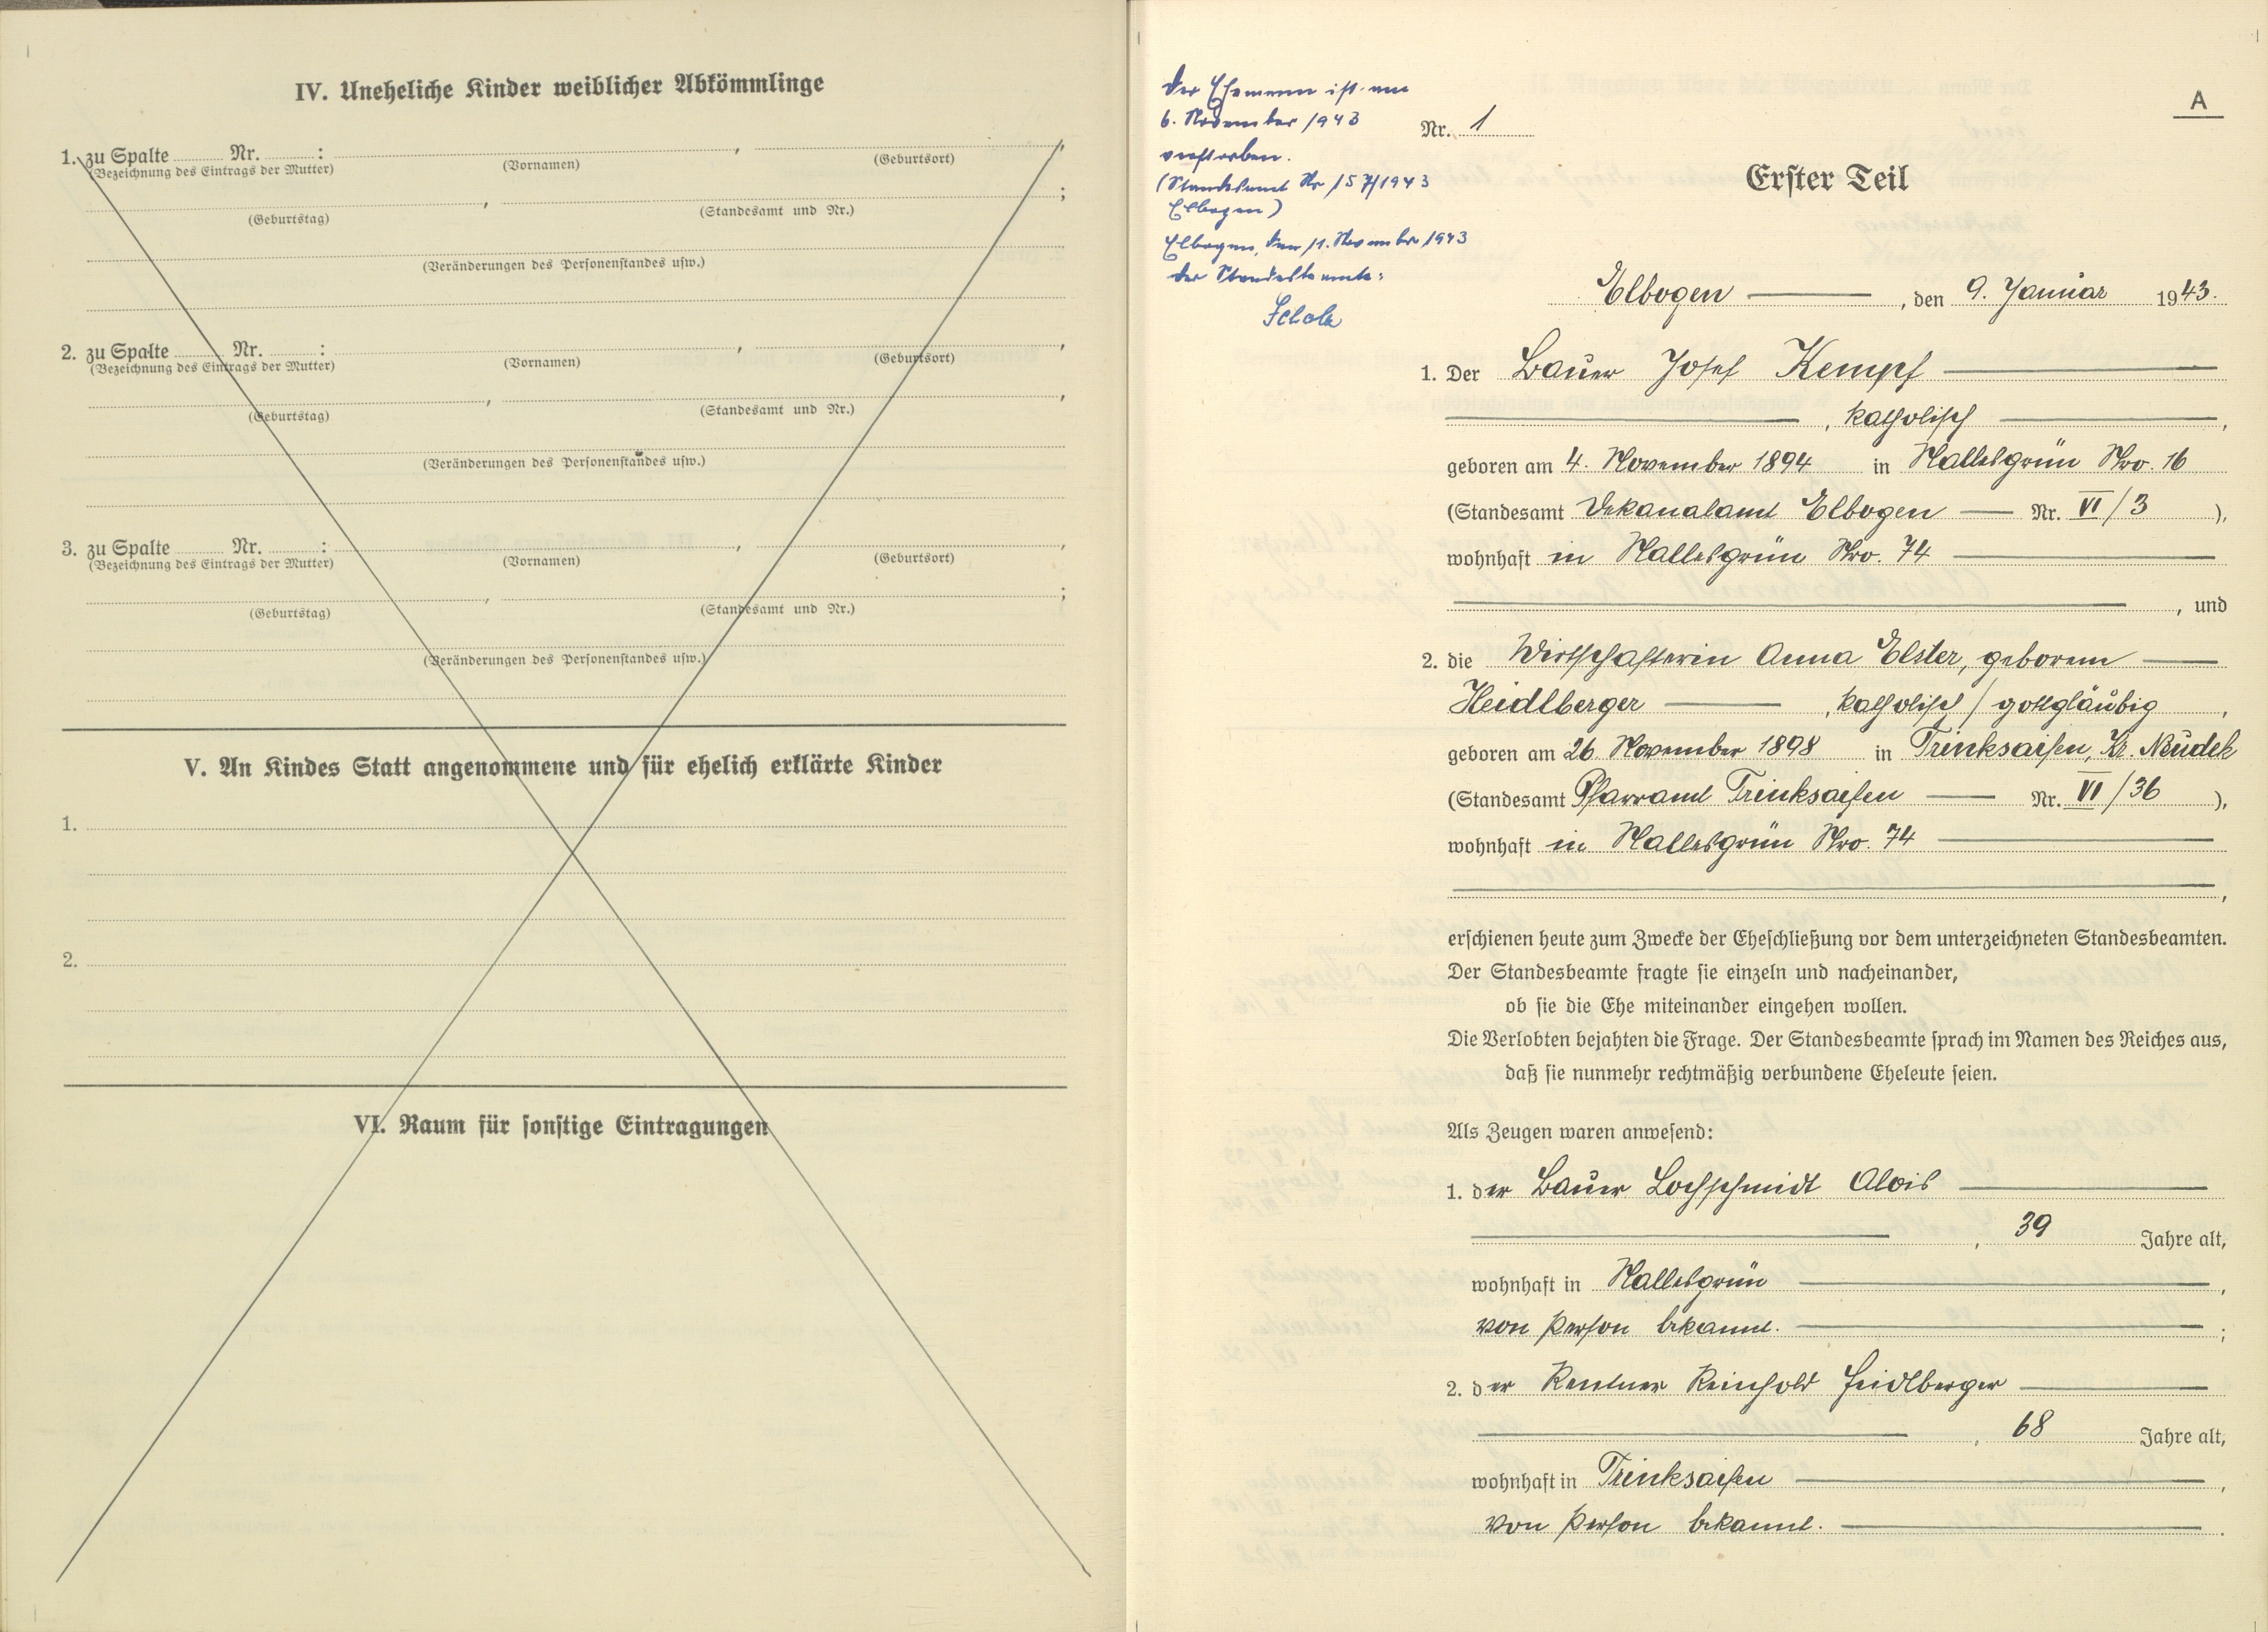 IV. Uneheliche Kinder weiblicher Abkömmlinge
1. zu Spalte Nr. :
(Bezeichnung des Eintrags der Mutter) (Vornamen) , (Geburtsort) ,
(Geburtstag) , (Standesamt und Nr.) ;
(Veränderungen des Personenstandes usw.)
2. zu Spalte Nr. :
(Bezeichnung des Eintrags der Mutter) (Vornamen) , (Geburtsort) ,
(Geburtstag) , (Standesamt und Nr.) ,
(Veränderungen des Personenstandes usw.)
3. zu Spalte Nr. :
(Bezeichnung des Eintrags der Mutter) (Vornamen) , (Geburtsort) ,
(Geburtstag) , (Standesamt und Nr.) ;
(Veränderungen des Personenstandes usw.)
V. An Kindes Statt angenommene und für ehelich erklärte Kinder
1.
2.
VI. Raum für sonstige Eintragungen
Der Ehemann ist am
6. November 1943
verstorben.
(Standesamt Nr 157/1943
Elbogen)
Elbogen, den 11. November 1943
Der Standesbeamte:
Scholz
A
Nr. 1
Erster Teil
Elbogen , den 9. Januar 1943.
1. Der Bauer Josef Kempf
, katholisch ,
geboren am 4. November 1894 in Nallesgrün Nro. 16
(Standesamt Dekanalamt Elbogen Nr. VI/3 ),
wohnhaft in Nallesgrün Nro. 74
, und
2. die Wirtschafterin Anna Elster, geborene
Heidlberger , katholisch / gottgläubig ,
geboren am 26. November 1898 in Trinksaifen, Kr. Neudek
(Standesamt Pfarramt Trinksaifen Nr. VI/36 ),
wohnhaft in Nallesgrün Nro. 74
,
erschienen heute zum Zwecke der Eheschließung vor dem unterzeichneten Standesbeamten.
Der Standesbeamte fragte sie einzeln und nacheinander,
ob sie die Ehe miteinander eingehen wollen.
Die Verlobten bejahten die Frage. Der Standesbeamte sprach im Namen des Reiches aus,
daß sie nunmehr rechtmäßig verbundene Eheleute seien.
Als Zeugen waren anwesend:
1. der Bauer Lochschmidt Alois
, 39 Jahre alt,
wohnhaft in Nallesgrün ,
von Person bekannt. ;
2. der Rentner Reinhold Heidlberger
, 68 Jahre alt,
wohnhaft in Trinksaifen ,
von Person bekannt. .